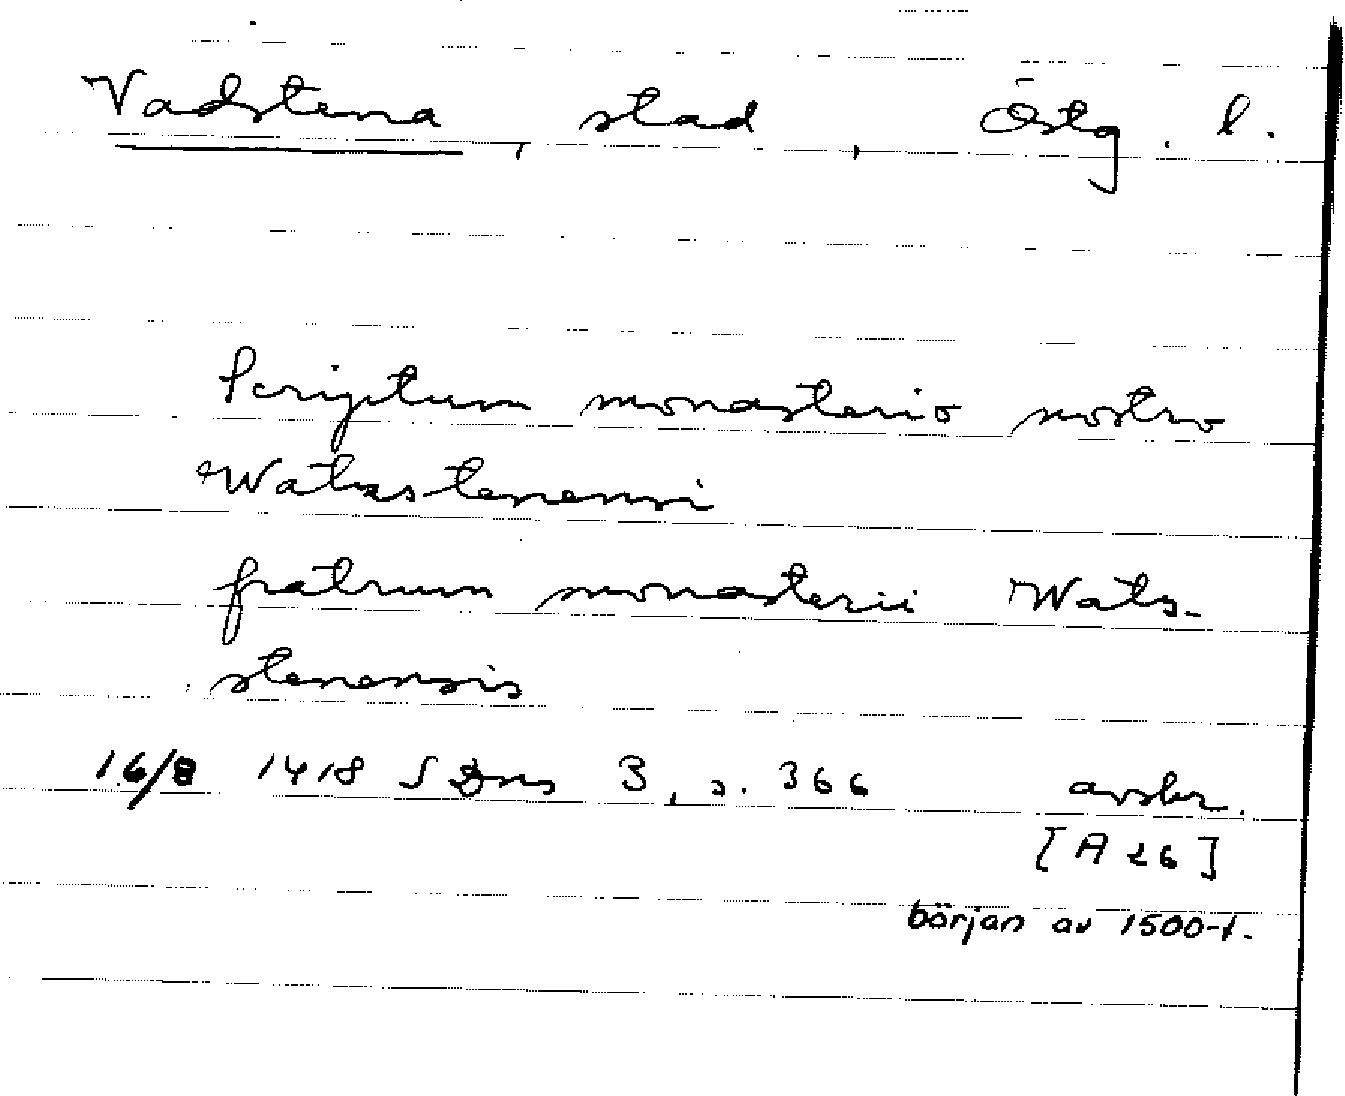 Vadstena, stad, Östg. l.
Scriptum monasterio nostro
Watzstenensi
fratrum monasterii Watz-
stenensis
16/8 1418 SDns 3, s. 366 avskr.
[A 26]
början av 1500-t.